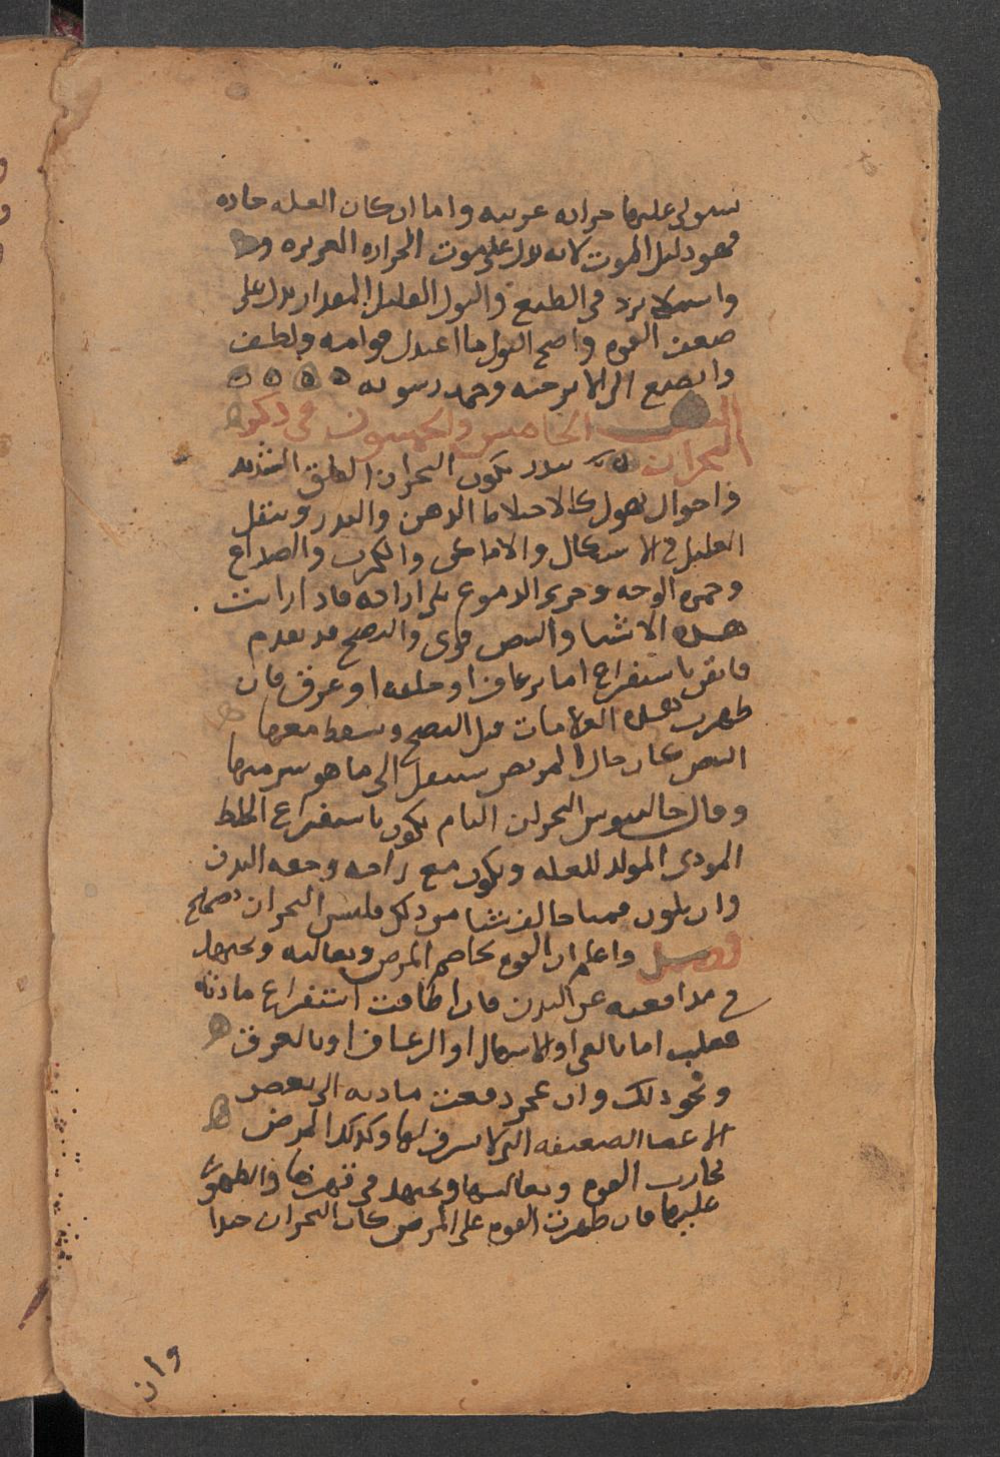 تستولى عليها حراره غريبه واما ان كان العله حاده
فهو دليل الموت لانه يدل على موت الحراره الغريزه
واستيلا برد فى الطبع والبول القليل المقدار يدل على
ضعف القوه واصح البول ما اعتدل قوامه ولطف
وانصبغ الى الاترجيه وحمد رسوبه ه ه ه ه
الباب الخامس والخمسون فى ذكر
البحران ينذر بكون البحران القلق الشديد
واحوال تهول كالاختلاط الذهن والهذر وينقل
العليل فى الاشكال والاماكن والكرب والصداع
وحمره الوجه وجرى الدموع بلى ارادته فاذا رايت
هذه الاشيا والنبض قوى والنضج قد تقدم
فايقن باستفراغ اما برعاف او خلفه او عرق فان
ظهرت هذه العلامات قبل النضج وسقط معها
النبض فان حال المريض ستنقل الى ما هو شر منها
وقال جالينوس البحران التام يكون باستفراغ الخلط
الموذى المولد للعله ويكون مع راحه وخفه البدن
وان يكون فمما خالف شا من ذلك فليس البحران بصحيح
فصل واعلم ان القوه تخاصم المرض وتغالبه وتجتهد
فى مدافعته عن البدن فان اطاقت استفراغ مادته
فعلت اما بالقى او الاسهال او الرعاف او بالعرق
ونحو ذلك وان عجز دفعت مادته الى بعض
الاعضا الضعيفه التى لا شرف لها وكذلك المرض
يحارب القوه ويغالبها ويجتهد فى قهرها والظهور
عليها فان ظهرت القوه على المرض كان البحران جيدا
وان